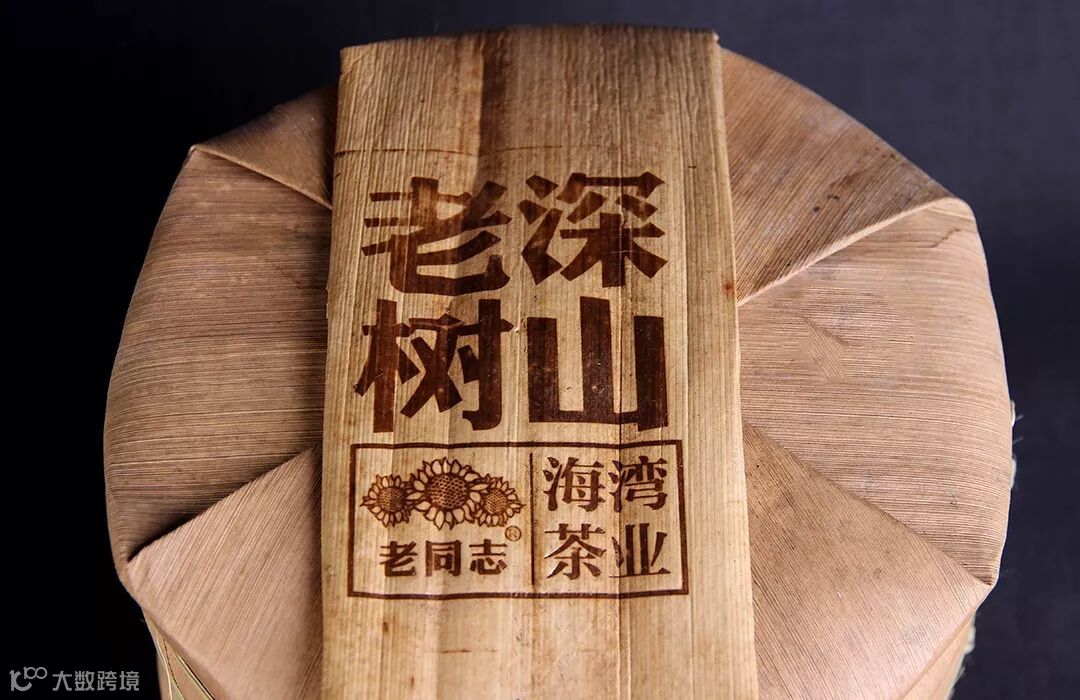 深山
老树
老同志®
海湾
茶业
大数跨境